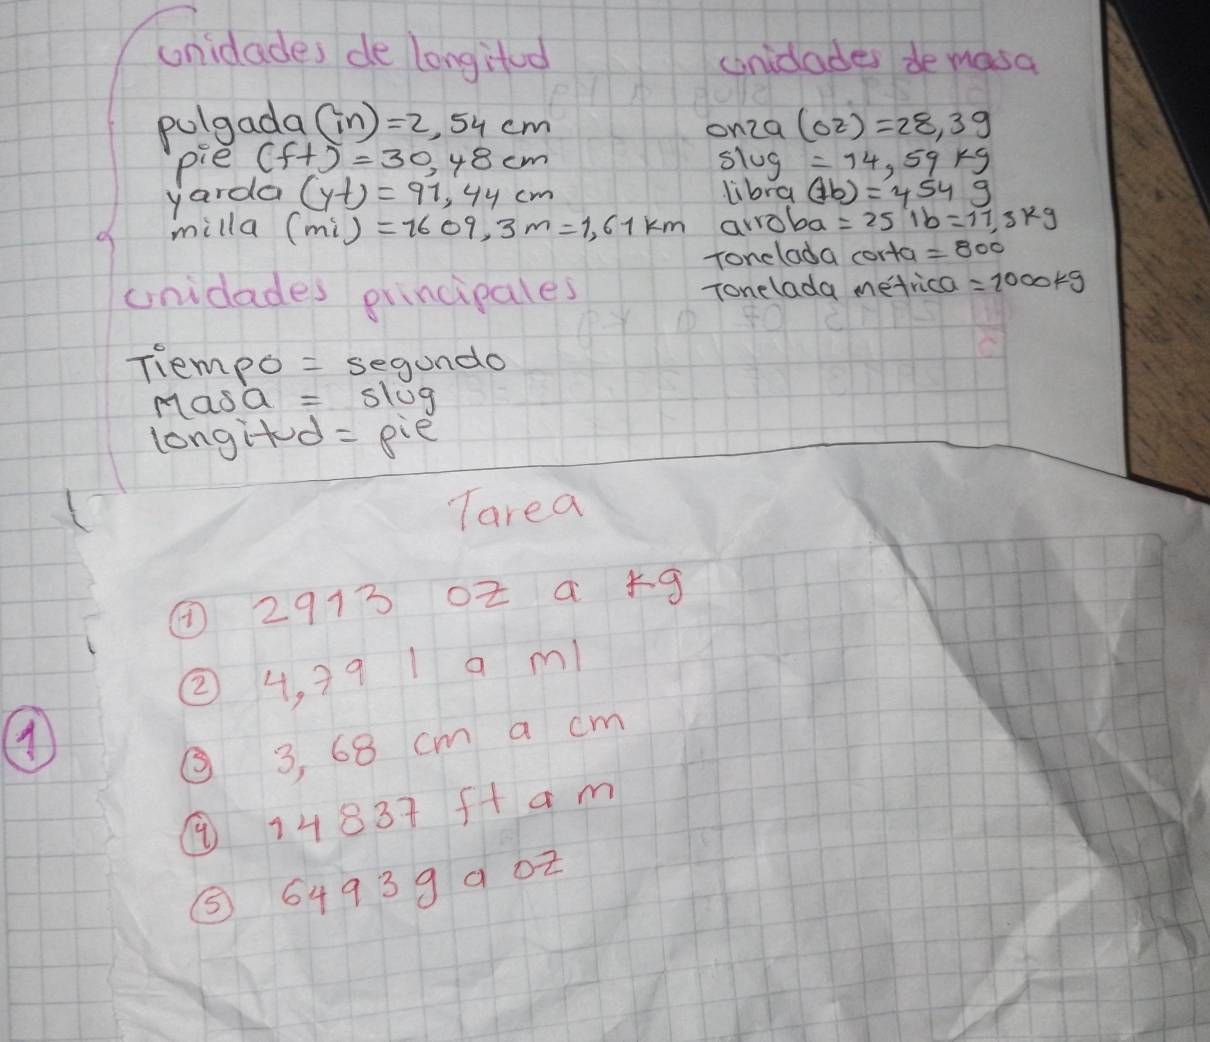 unidades de longitud
pulgada (in) = 2,54 cm
pie (ft) = 30,48 cm
yarda (yt) = 91,44 cm
milla (mi) = 1609,3 m = 1,61 km
unidades principales
Tiempo = segundo
Masa = slug
longitud = pie
unidades de masa
onza (oz) = 28,3 g
slug = 14,59 kg
libra (lb) = 454 g
arroba = 25 lb = 11,3 kg
Tonelada corta = 800
Tonelada métrica = 1000 kg
Tarea
① 2913 oz a kg
② 4,79 l a ml
③ 3,68 cm a cm
④ 14837 ft a m
⑤ 6493 g a oz
①